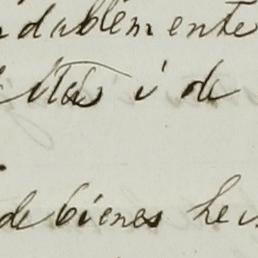 dablemente
i de
de bienes he